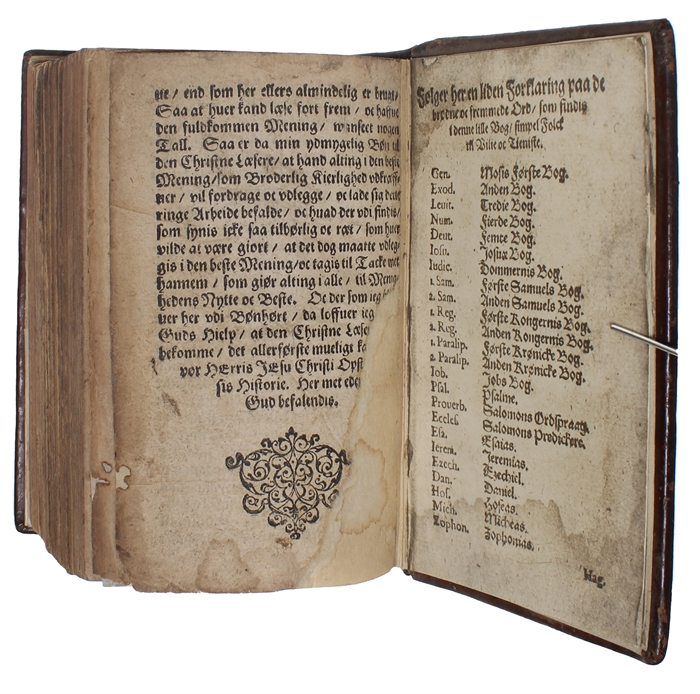 ne / end som her ellers almindelig er brugt /
Saa at huer kand læse fort frem / oc haffue
den fuldkommen Mening / uanseet nogen
Tall. Saa er da min ydmygelig Bøn til
den Christne Læsere / at hand alting i den beste
Mening / som Broderlig Kierlighed udkræff-
uer / vil fordrage oc udlegge / oc lade sig dette
ringe Arbeide befalde / oc huad der udi findis /
som synis icke saa tilbørlig oc ræt / som huer
vilde at være giort / at det dog maatte udleg-
gis i den beste Mening / oc tagis til Tacke met
hannem / som giør alting i alle / til Menig-
hedens Nytte oc Beste. Oc der som ieg
uer her udi Bønhørt / da loffuer ieg
Guds Hielp / at den Christne Læser
bekomme / det allerførste mueligt
vor HErris JEsu Christi Opst
sis Historie. Her met eder
Gud befalendis.
Følger her en liden Forklaring paa de
brødne oc fremmede Ord / som findis
i denne lille Bog / simpel Folck
til Vilie oc Tieniste.
Gen. Mosis Første Bog.
Exod. Anden Bog.
Levit. Tredie Bog.
Num. Fierde Bog.
Deut. Femte Bog.
Josu. Josuæ Bog.
Iudic. Dommernis Bog.
1. Sam. Første Samuels Bog.
2. Sam. Anden Samuels Bog.
1. Reg. Første Kongernis Bog.
2. Reg. Anden Kongernis Bog.
1. Paralip. Første Krønicke Bog.
2. Paralip. Anden Krønicke Bog.
Iob. Jobs Bog.
Psal. Psalme.
Prouerb. Salomons Ordspraag.
Eccles. Salomons Prædickere.
Esa. Esaias.
Ierem. Jeremias.
Ezech. Ezechiel.
Dan. Daniel.
Hos. Hoseas.
Mich. Micheas.
Zophon. Zophonias.
Hag.